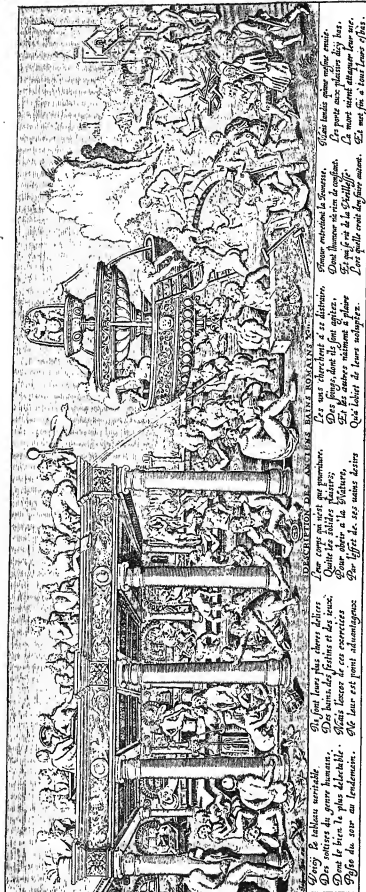 DESCRIPTION DES ANCIENS BAINS ROMAINS
Voicy le tableau veritable
Des sottises du genre humain,
Dont le bien le plus delectable
Passe du soir au lendemain.
Ils font leurs plus cheres delices
Des bains, des festins et des ieux,
Mais l'excez de ces exercices
Ne leur est point aduantageux
Leur corps qui n'est que pourriture,
Quitte les solides
Pour obeir a la Nature,
Par l'effet de ses uains desirs
Les uns cherchent a se distraire,
Des dont ils sont agitez,
Et les autres n'aiment a plaire
Qu'a l'obiet de leurs uoluptez.
L'amour entretient la Jeunesse,
Dont l'humeur n'a rien de constant,
Et qui se rit de la Vieillesse
Lors qu'elle croit d'en faire autant.
Mais tandis qu'une mesme enuie
Les porte aux plaisirs d'icy bas,
La mort uient attaquer leur uie,
Et met fin a tous leurs esbas.